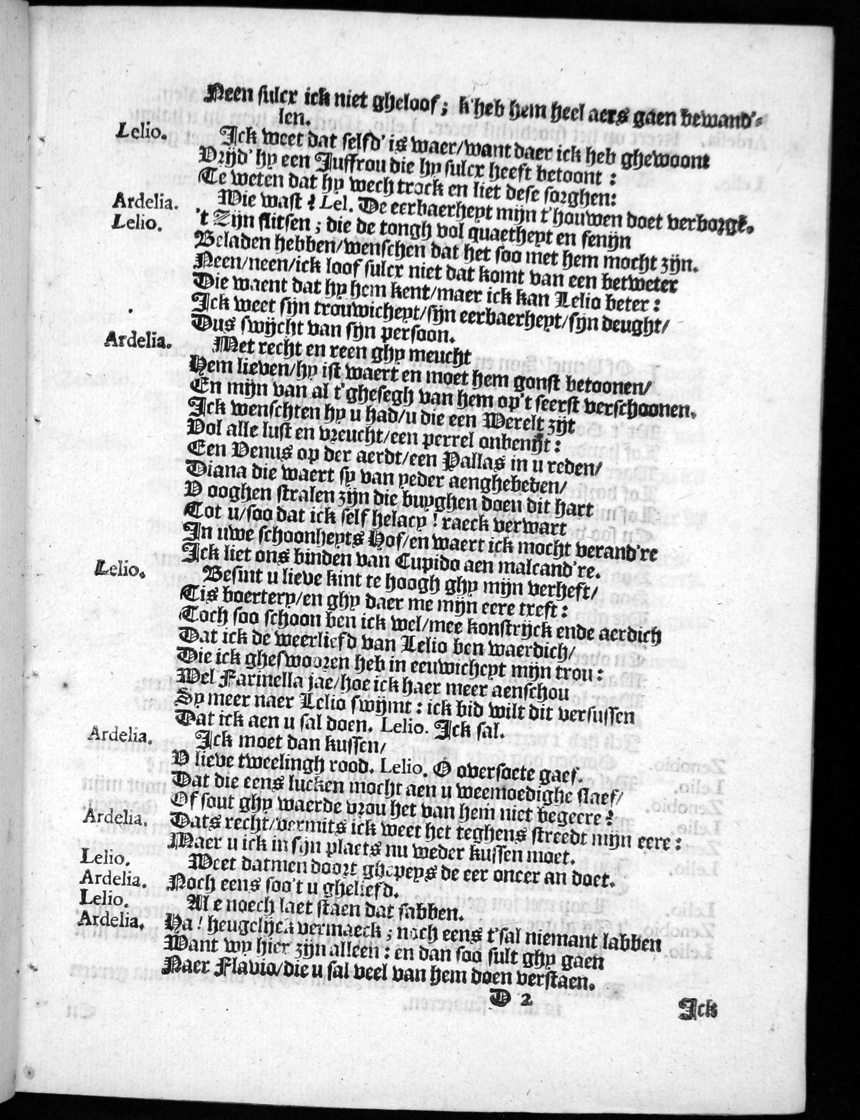 Neen sulcx ick niet gheloof; k'heb hem heel aers gaen bewand'-
len.
Lelio. Ick weet dat selfd' is waer/want daer ick heb ghewoont
Vrijd' hy een Juffrou die hy sulcx heeft betoont:
Te weten dat hy wech track en liet dese sorghen:
Ardelia. Wie wast? Lel. De eerbaerheyt mijn t'houwen doet verborgē.
Lelio. 't Zijn flitsen; die de tongh vol quaetheyt en fenijn
Beladen hebben/wenschen dat het soo met hem mocht zijn.
Neen/neen/ick loof sulcx niet dat komt van een betweter
Die waent dat hy hem kent/maer ick kan Lelio beter:
Ick weet sijn trouwicheyt/sijn eerbaerheyt/sijn deught/
Dus swijcht van sijn persoon.
Ardelia. Met recht en reen ghy meucht
Hem lieven/hy ist waert en moet hem gonst betoonen/
En mijn van al t'ghesegh van hem op't seerst verschoonen.
Ick wenschten hy u had/u die een Werelt zijt
Vol alle lust en vreucht/een perrel onbenijt:
Een Venus op der aerdt/een Pallas in u reden/
Diana die waert sy van yeder aenghebeden/
V ooghen stralen zijn die buyghen doen dit hart
Tot u/soo dat ick self helacy! raeck verwart
In uwe schoonheyts Hof/en waert ick mocht verand're
Ick liet ons binden van Cupido aen malcand're.
Lelio. Besint u lieve kint te hoogh ghy mijn verheft/
Tis boertery/en ghy daer me mijn eere treft:
Toch soo schoon ben ick wel/mee konstrijck ende aerdich
Dat ick de weerliefd van Lelio ben waerdich/
Die ick ghesworen heb in eeuwicheyt mijn trou:
Wel Farinella jae/hoe ick haer meer aenschou
Sy meer naer Lelio swijmt: ick bid wilt dit versussen
Dat ick aen u sal doen. Lelio. Ick sal.
Ardelia. Ick moet dan kussen/
V lieve tweelingh rood. Lelio. O oversoete gaef.
Dat die eens lucken mocht aen u weemoedighe slaef/
Of sout ghy waerde vrou het van hem niet begeere?
Ardelia. Dats recht/vermits ick weet het teghens streedt mijn eere:
Maer u ick in sijn plaets nu weder kussen moet.
Lelio. Weet datmen doort ghepeys de eer oneer an doet.
Ardelia. Noch eens soo't u gheliefd.
Lelio. Al e noech laet staen dat sabben.
Ardelia. Ha! heugelijck vermaeck; noch eens t'sal niemant labben
Want wy hier zijn alleen: en dan soo sult ghy gaen
Naer Flavio/die u sal veel van hem doen verstaen.
D 2 Ick